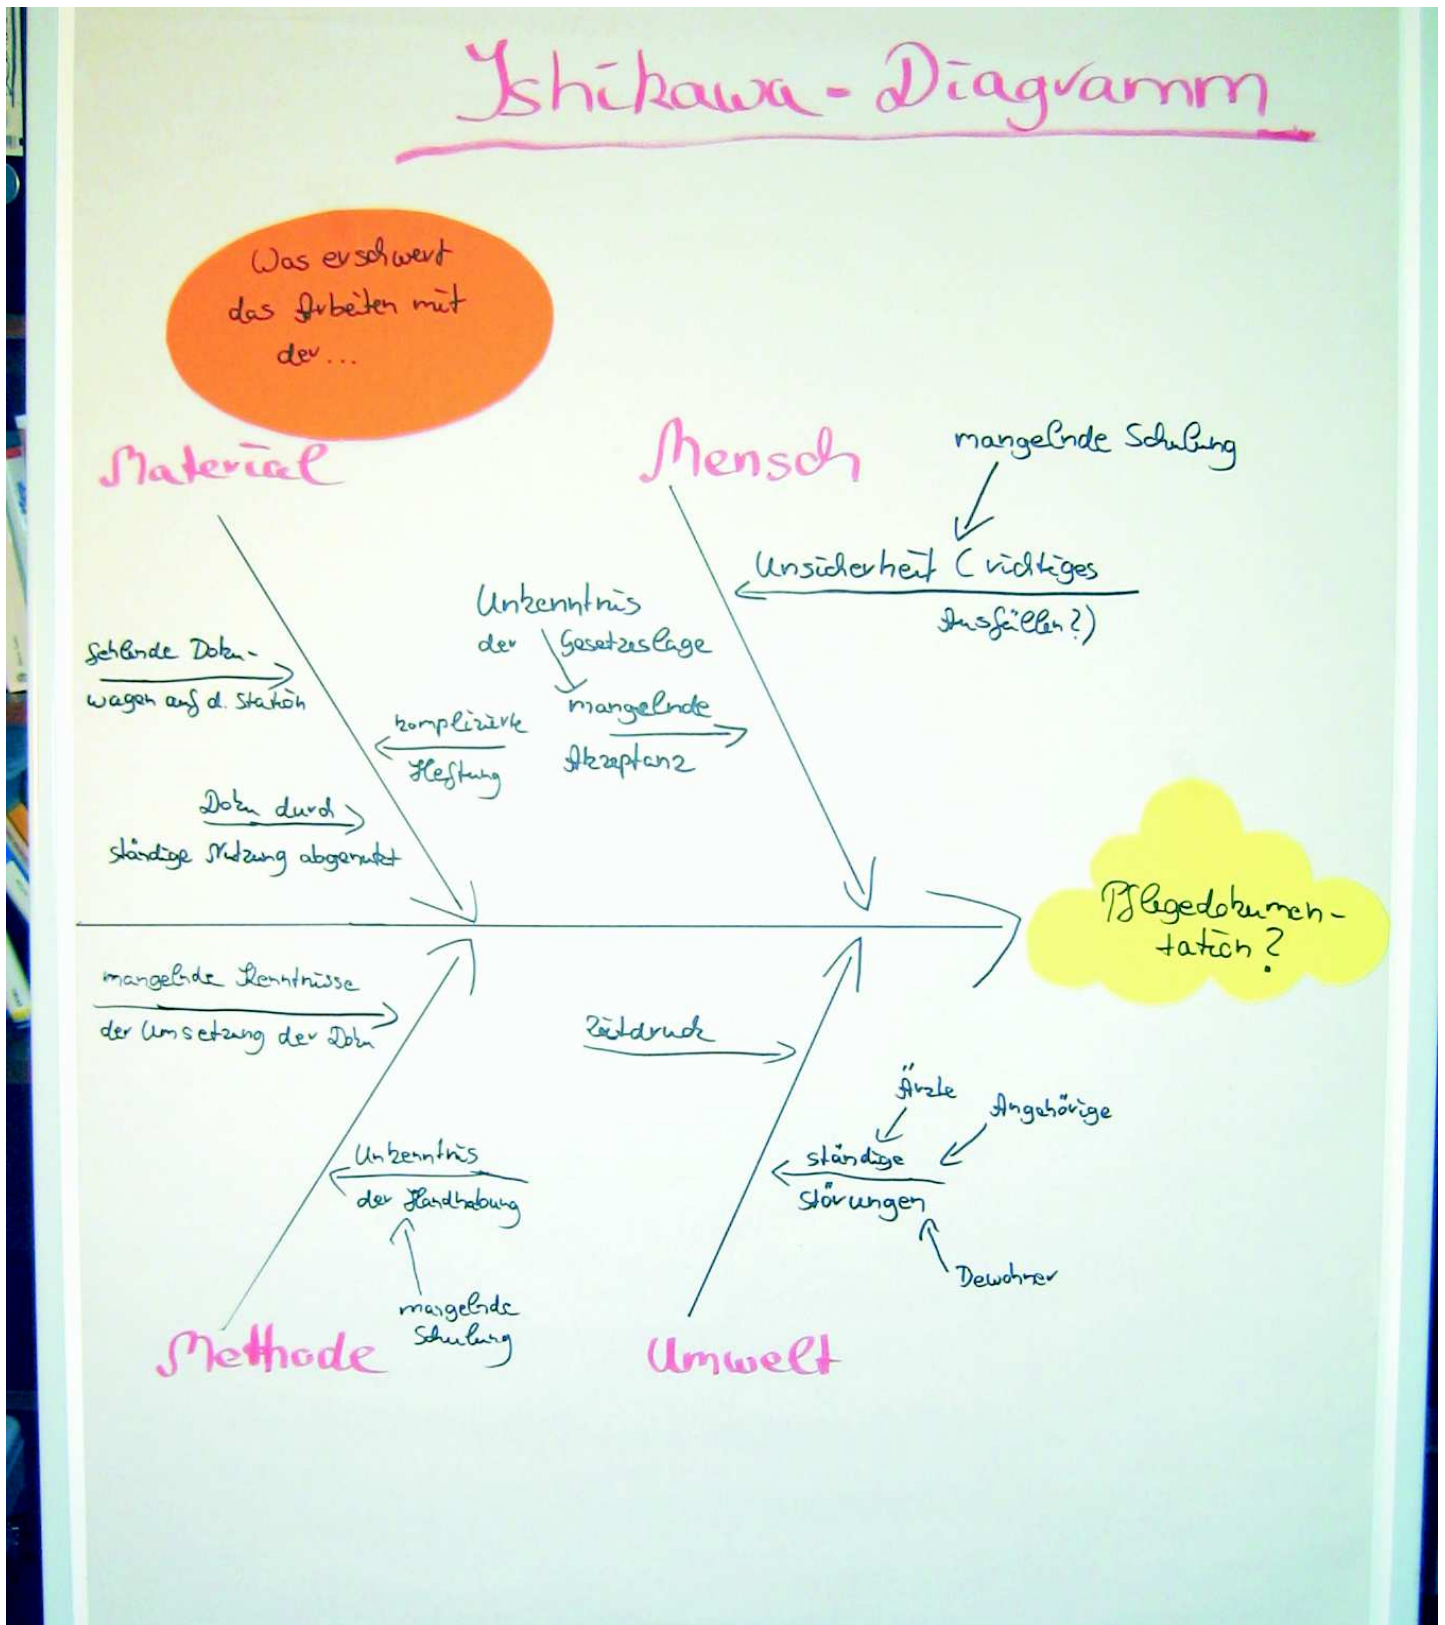 Ishikawa-Diagramm
Was erschwert
das Arbeiten mit
der...
Material
Mensch
mangelnde Schulung
Unsicherheit (richtiges
Ausfüllen?)
Unkenntnis
der Gesetzeslage
mangelnde
Akzeptanz
fehlende Doku-
wagen auf d. Station
komplizierte
Heftung
Doku durch
ständige Nutzung abgenutzt
Pflegedokumen-
tation?
mangelnde Kenntnisse
der Umsetzung der Doku
Zeitdruck
Ärzte
Angehörige
ständige
störungen
Bewohner
Unkenntnis
der Handhabung
mangelnde
Schulung
Methode
Umwelt